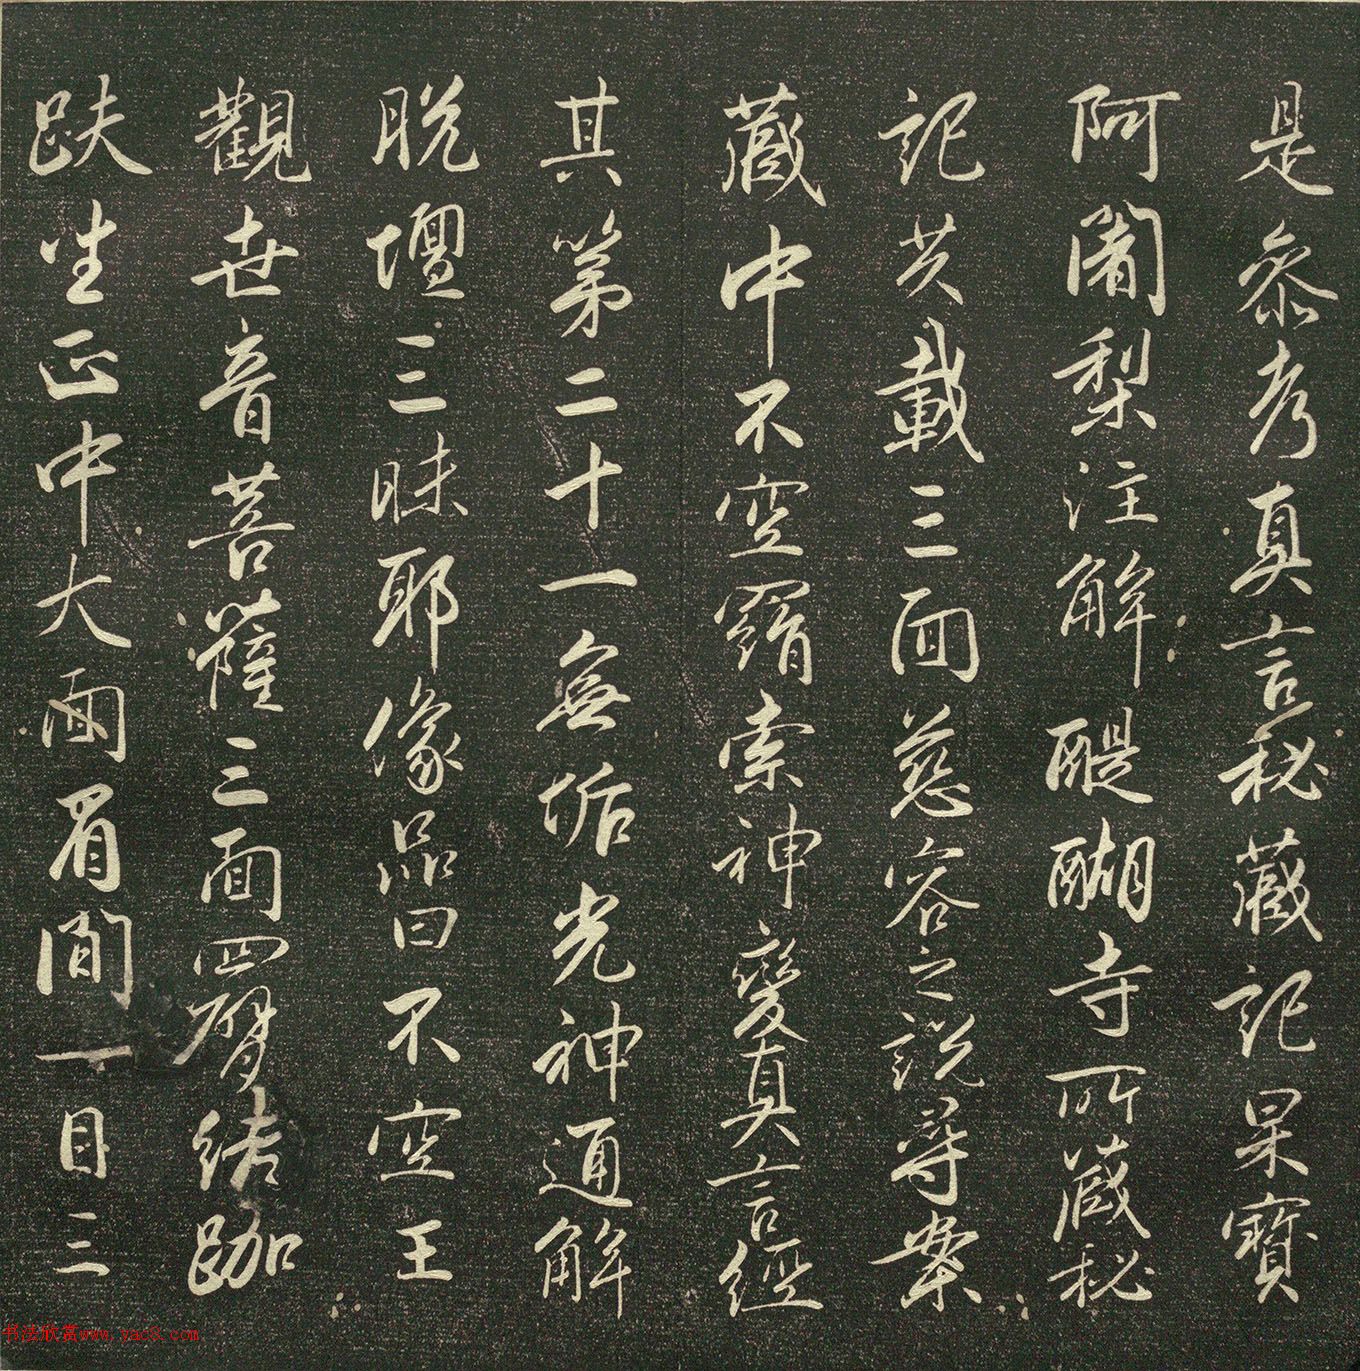 是參考真言秘藏記杲寶
阿闍梨注解醍醐寺所藏秘
記共載三面慈容之說尋案
藏中不空羂索神變真言經
其第二十一無垢光神通解
脫壇三昧耶像品曰不空王
觀世音菩薩三面四臂結跏
趺坐正中大面眉間一目三
书法欣赏www.yac8.com